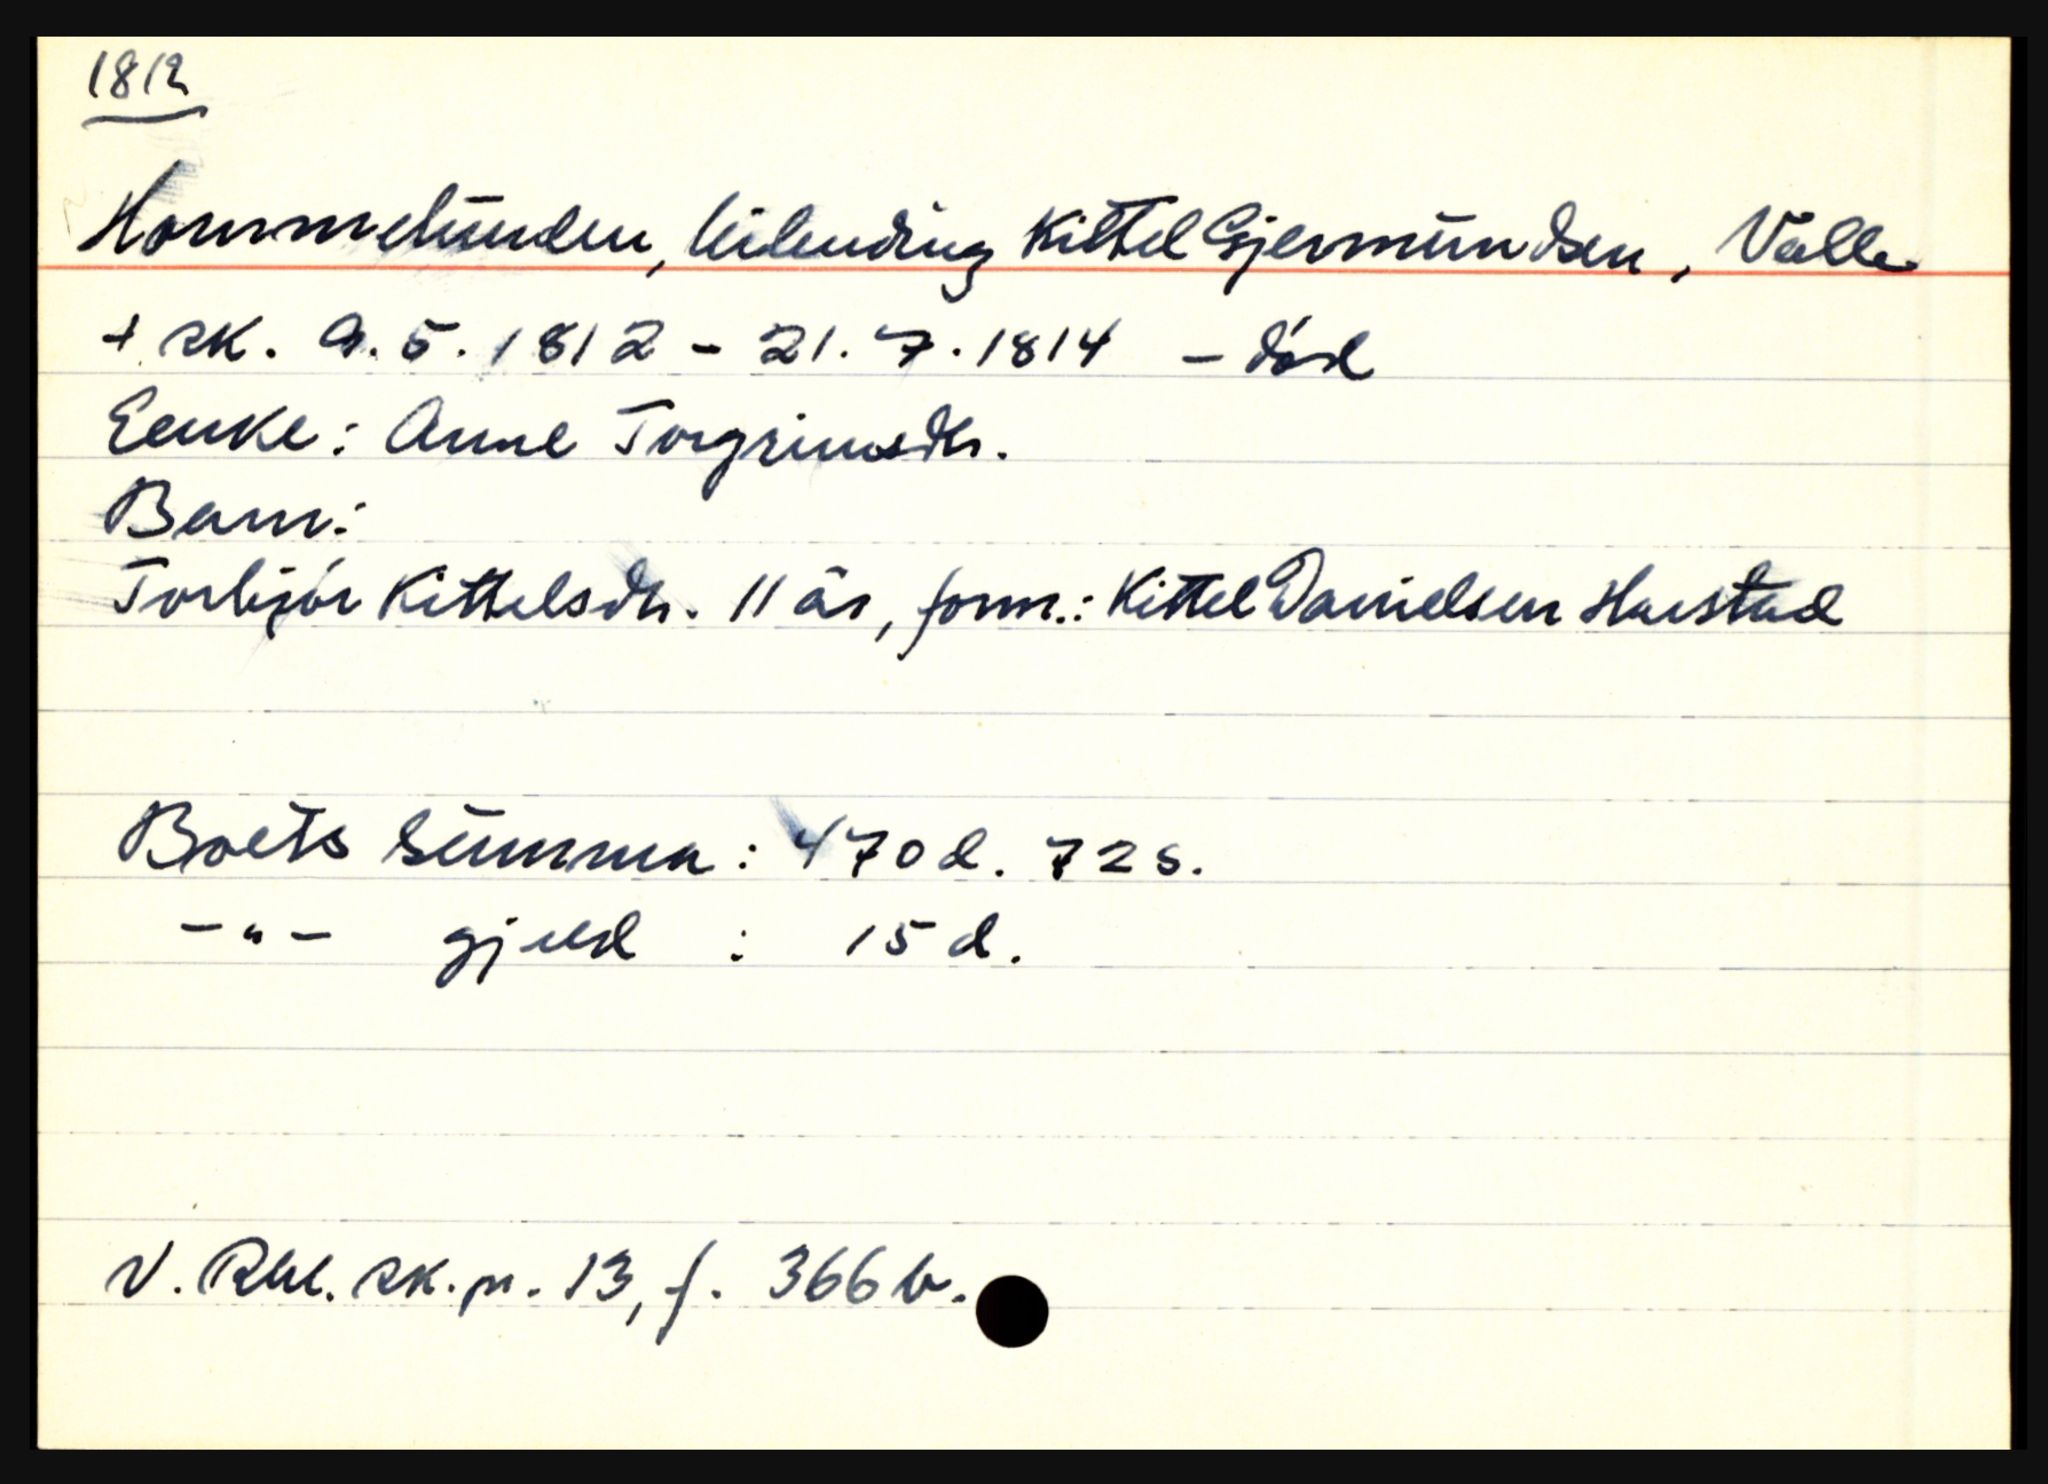 1812
Hommelunden, leilending Kittel Gjermundsen, Valle
+ sk. 9.5.1812 - 21.7.1814 - død
Eenke: Anne Torgrimsdtr.
Barn:
Torbjør Kittelsdtr. 11 år, form.: Kittel Danielsen Harstad
Boets Summa: 470 d. 72 s.
-"- gjeld : 15 d.
V. Rbl. sk.pr. 13, f. 366 b.